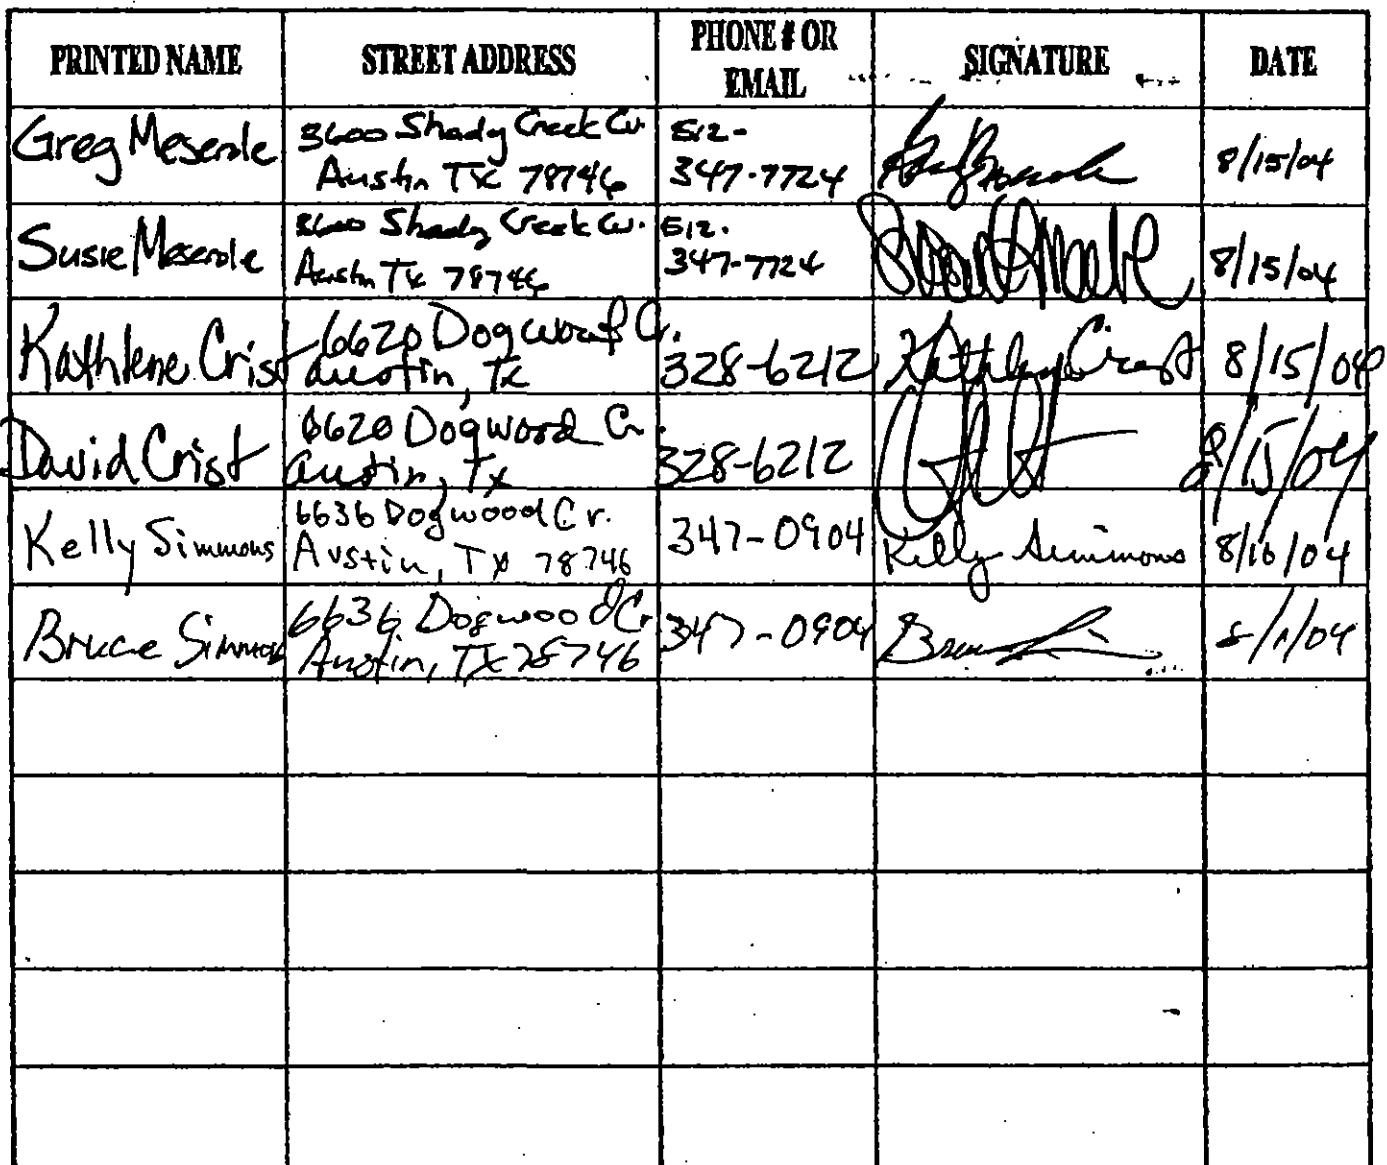 PRINTED NAME STREET ADDRESS PHONE # OR EMAIL SIGNATURE DATE
Greg Meserole 3600 Shady Creek Cv. 512-
Austin TX 78746 347-7724 8/15/04
Susie Meserole 3600 Shady Creek Cv. 512-
Austin TX 78746 347-7724 8/15/04
Kathlene Crist 6620 Dogwood Cr.
Austin, Tx 328-6212 Kathlene Crist 8/15/04
David Crist 6620 Dogwood Cr.
Austin, Tx 328-6212 8/15/04
Kelly Simmons 6636 Dogwood Cr.
Austin, TX 78746 347-0904 Kelly Simmons 8/16/04
Bruce Simmons 6636 Dogwood Cr
Austin, TX 78746 347-0904 8/1/04